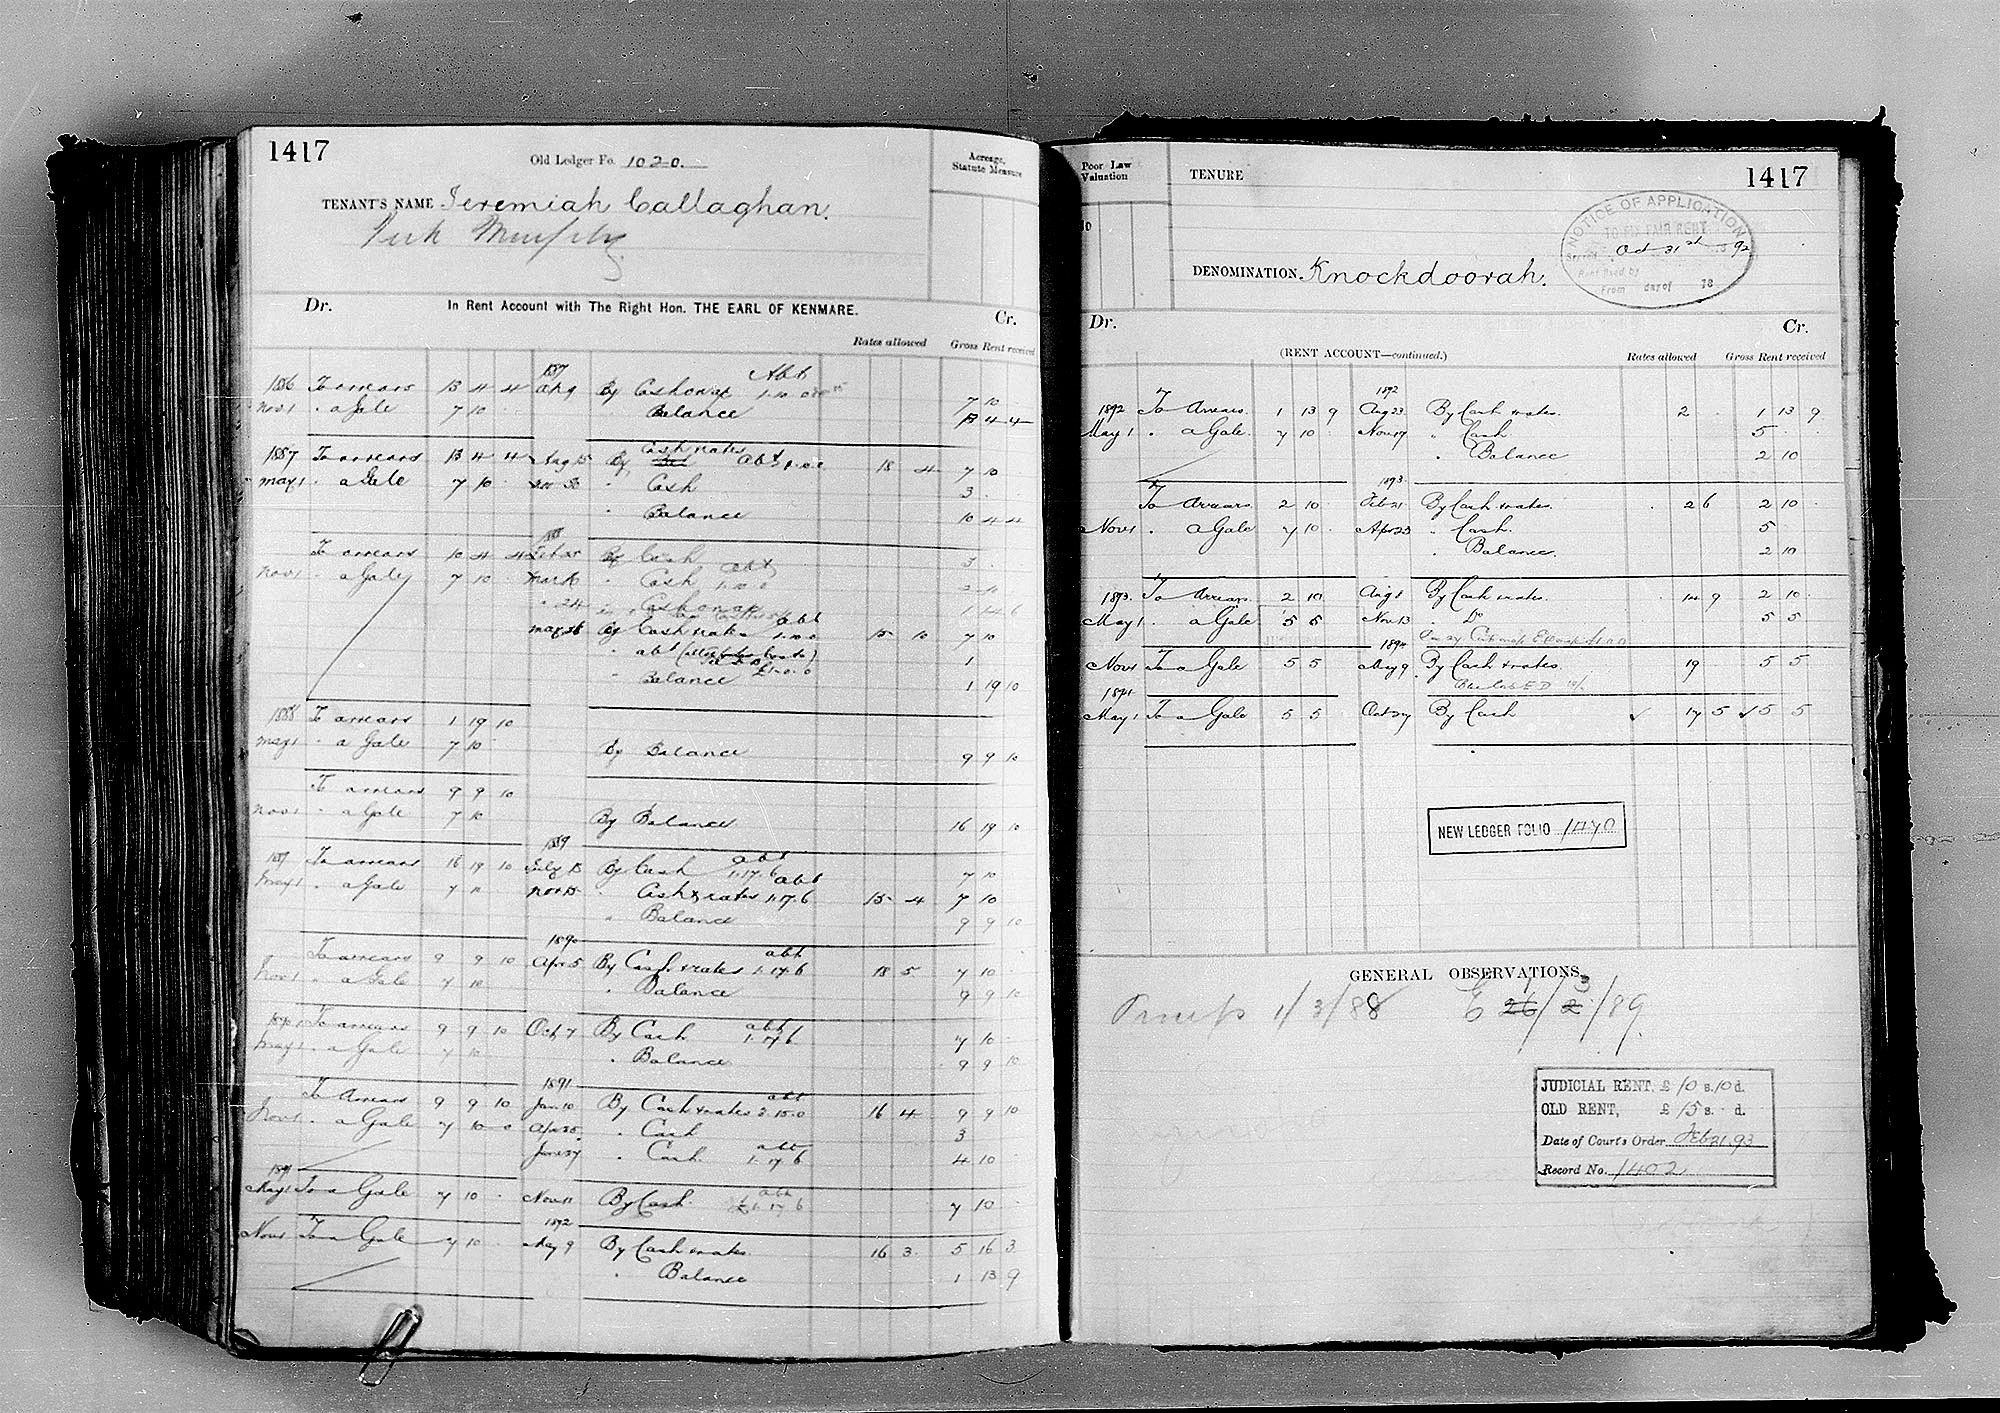 1417
Old Ledger Fo. 1020.
Acreage, Statute Measure
TENANT'S NAME Jeremiah Callaghan.
Murphy
Dr. In Rent Account with The Right Hon. THE EARL OF KENMARE. Cr.
Rates allowed Gross Rent received
1887 Abt
1886 To arrears 13 4 4 By Cash 1.10.0 7 10
Nov 1 " a Gale 7 10 Balance 13 4 4
1887 To arrears 13 4 4 Aug 15 By Cash & rates abt 18 4 7 10
May 1 " a Gale 7 10 " Cash 3
" Balance 10 4 4
To arrears 10 4 4 By Cash 3
Nov 1 " a Gale 7 10 " Cash abt 1.10.0
" 24
May 26 By Cash & rates abt 1.10.0 15 10 7 10
" abt 1
" Balance £1.0.0 1 19 10
1888 To arrears 1 19 10
May 1 " a Gale 7 10 By Balance 9 9 10
To arrears 9 9 10
Nov 1 " a Gale 7 10 By Balance 16 19 10
1889
To arrears 16 19 10 July 13 By Cash abt 1.17.6 7 10
May 1 " a Gale 7 10 Cash & rates abt 1.17.6 15 4 7 10
" Balance 9 9 10
1890
To arrears 9 9 10 Apr 5 By Cash & rates abt 1.17.6 18 5 7 10
Nov 1 " a Gale 7 10 " Balance 9 9 10
1890 To arrears 9 9 10 Oct 7 By Cash abt 1.17.6 7 10
May 1 " a Gale 7 10 " Balance 9 9 10
1891
To Arrears 9 9 10 Jan 10 By Cash & rates abt 2.15.0 16 4 9 9 10
Nov 1 " a Gale 7 10 0 Apr 25 " Cash 3
June 27 " Cash abt 1.17.6 4 10
1891
May 1 To a Gale 7 10 Nov 11 By Cash abt £1.17.6 7 10
1892
Nov 1 To a Gale 7 10 May 9 By Cash & rates 16 3 5 16 3
" Balance 1 13 9
Poor Law Valuation
TENURE
1417
NOTICE OF APPLICATION
TO FIX FAIR RENT
Served Oct 31st 1892
Rent fixed by
From day of 18
DENOMINATION. Knockdoorah.
Dr. Cr.
(RENT ACCOUNT—continued.) Rates allowed Gross Rent received
1892
1892 To Arrears 1 13 9 Aug 23 By Cash & rates. 2 1 13 9
May 1 " a Gale 7 10 Nov 17 " Cash 5
" Balance 2 10
1893
To Arrears 2 10 Feb 21 By Cash & rates. 2 6 2 10
Nov 1 " a Gale 7 10 Apr 23 " Cash. 5
" Balance. 2 10
1893. To Arrears 2 10 Aug 8 By Cash & rates. 14 9 2 10
May 1 " a Gale 5 5 Nov 13 " Do 5 5
1894
Nov 1 To a Gale 5 5 May 9 By Cash & rates. 19 5 5
1894
May 1 To a Gale 5 5 Oct 27 By Cash ✓ 17 5 ✓ 5 5
NEW LEDGER FOLIO 1470
GENERAL OBSERVATIONS.
1/3/88 E 26/2/89
1 3
JUDICIAL RENT, £ 10 s. 10 d.
OLD RENT, £ 15 s. d.
Date of Court's Order Feb 21. 93
Record No. 1402